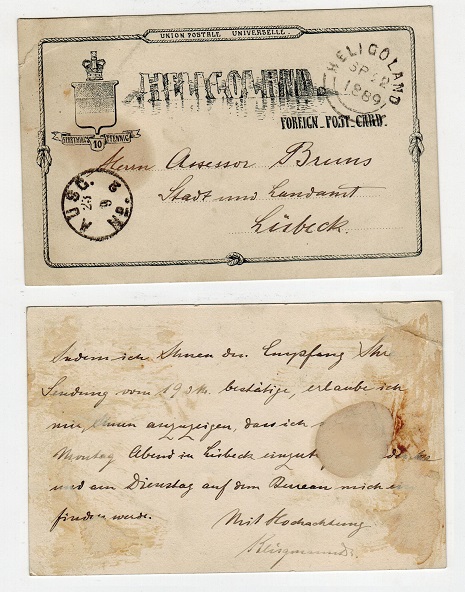 UNION POSTALE UNIVERSELLE.
HELIGOLAND.
HELIGOLAND
SP 22
1889
FARTHING 10 PFENNIG
FOREIGN POST-CARD.
Herrn Assessor Bruns
Stadt und Landamt
Lübeck.
AUSG. No. 3
23 9
Indem ich Ihnen den Empfang Ihr
Sendung vom 19 d. Mts. bestätige, erlaube ich
mir Ihnen anzuzeigen, dass ich
Montag Abend in Lübeck
und am Dienstag auf dem Bureau mich
finden werde.
Mit Hochachtung